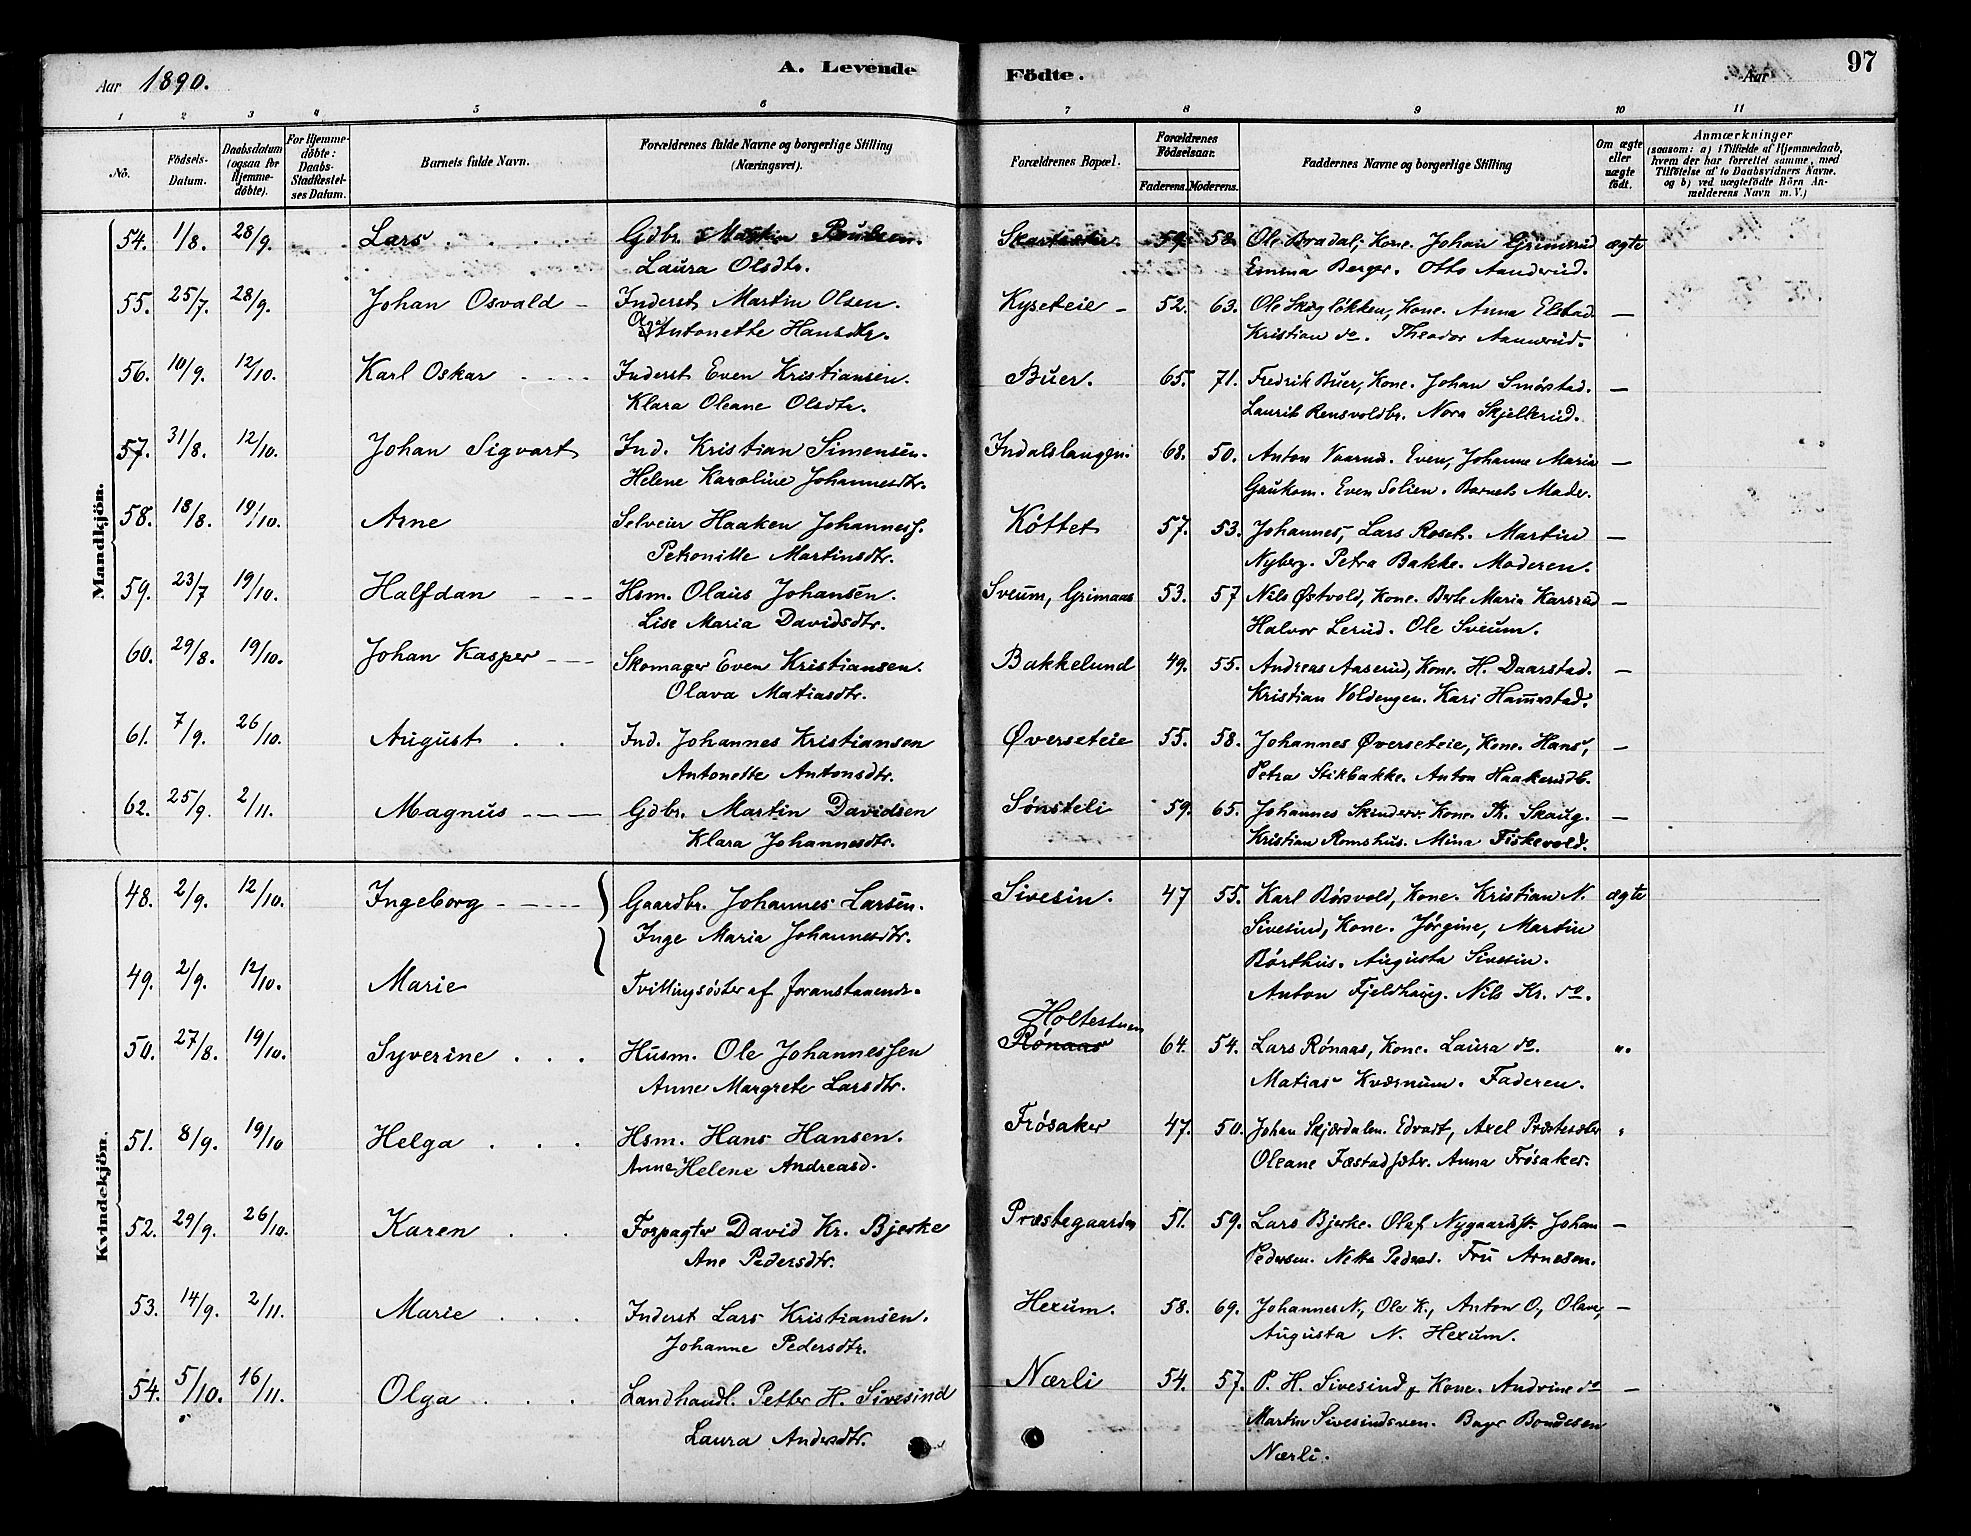 Aar 1890.
A. Levende
Fødte.
Aar
97
1 2 3 4 5 6 7 8 9 10 11
No.
Fødsels-Datum.
Daabsdatum (ogsaa for Hjemmedöbte).
For Hjemmedöbte: Daabs-Stadfæstelses Datum.
Barnets fulde Navn.
Forældrenes fulde Navne og borgerlige Stilling (Næringsvei).
Forældrenes Bopæl.
Forældrenes Födselsaar.
Faderens. Moderens.
Faddernes Navne og borgerlige Stilling
Om ægte eller uægte födt.
Anmærkninger
(saasom: a) i Tilfælde af Hjemmedaab, hvem der har forrettet samme, med Tilföielse af to Daabsvidners Navne, og b) ved uægtefödte Börn Anmelderens Navn m. V.)
Mandkjön.
54. 1/8. 28/9. Lars Gdbr. Martin Poulsen. 59. 58. Ole Bradal, Kone. Johan Grimsrud ægte
Laura Olsdtr. Emma Berger. Otto Aanderud.
55. 25/7. 28/9. Johan Osvald Inderst Martin Olsen. Kyseteie 52. 63. Ole Skogløkken, Kone. Anna Elstad —
Antonette Hansdtr. Kristian do. Theodor Aannerud.
56. 10/9. 12/10. Karl Oskar Inderst Even Kristiansen. Buer. 65. 71. Fredrik Buer, Kone. Johan Smørstad. —
Klara Oleane Olsdtr. Laurits Rensvoldbr. Nora Skjellerud.
57. 31/8. 12/10. Johan Sigvart Ind. Kristian Simensen. Indalslaugen. 68. 50. Anton Vaarnes. Even, Johanne Maria —
Helene Karoline Johannesdtr. Gaukom. Even Solien. Barnets Moder.
58. 18/8. 19/10. Arne Selveier Haaken Johanness. Køttet 57. 53. Johannes, Lars Roset. Martin —
Petronille Martinsdtr. Nyberg. Petra Bakke. Moderen.
59. 23/7 19/10. Halfdan Hsm. Olaus Johansen. Sveum, Grimaas 53. 57 Nils Østvold, Kone. Berte Maria Karsrud —
Lise Maria Davidsdtr. Halvor Lerud. Ole Sveum.
60. 29/8. 19/10. Johan Kasper Skomager Even Kristiansen. Bakkelund 49. 55. Andreas Aaserud, Kone. H. Daarstad. —
Olava Matiasdtr. Kristian Voldengen. Kari Hammestad.
61. 7/9. 26/10. August Ind. Johannes Kristiansen Øverseteie 55. 58. Johannes Øverseteie, Kone. Hans, —
Antonette Antonsdtr. Petra Stikbakke. Anton Haakerudb.
62. 25/9. 2/11. Magnus Gdbr. Martin Davidsen Sønsteli 59. 65. Johannes Skinderv. Kone. Th. Skaug. —
Klara Johannesdtr. Kristian Romshus. Mina Fiskevold.
Kvindekjön.
48. 2/9. 12/10. Ingeborg Gaardbr. Johannes Larsen. Sivesin. 47 55. Karl Børsvold, Kone. Kristian N. ægte
Inge Maria Johannesdtr. Sivesind, Kone. Jørgine, Martin
Børthus. Augusta Sivesin.
49. 2/9. 12/10. Marie Tvillingsøster af foranstaaende. Anton Fjeldhaug. Nils Kr. do.
Holtestuen
50. 27/8. 19/10. Syverine Husm. Ole Johannessen Rønaas 64. 54. Lars Rønaas, Kone. Laura do. "
Anne Margrete Larsdtr. Matias Kværnum. Faderen.
51. 8/9. 19/10 Helga Hsm. Hans Hansen. Frøsaker 47. 50. Johan Skjærdalen. Edvart, Axel "
Anne Helene Andreasd. Oleane Fæstad. Anna Frøsaker.
52. 29/9. 26/10. Karen Forpagter David Kr. Bjerke Præstegaarden 51. 59. Lars Bjerke. Olaf Johan —
Ane Pedersdtr. Pedersen. Fru Arnesen.
53. 14/9. 2/11. Marie Inderst Lars Kristiansen. Hexum. 58. 69. Johannes N., Ole K., Anton O., Olave, —
Johanne Pedersdtr. Augusta N. Hexum.
54. 5/10. 16/11. Olga Landhandl. Petter H. Sivesind Nærli 54. 57. P. H. Sivesind, Kone. Andrine do —
Laura Andersdtr. Martin Sivesindsven. Bondesen
Nærli.